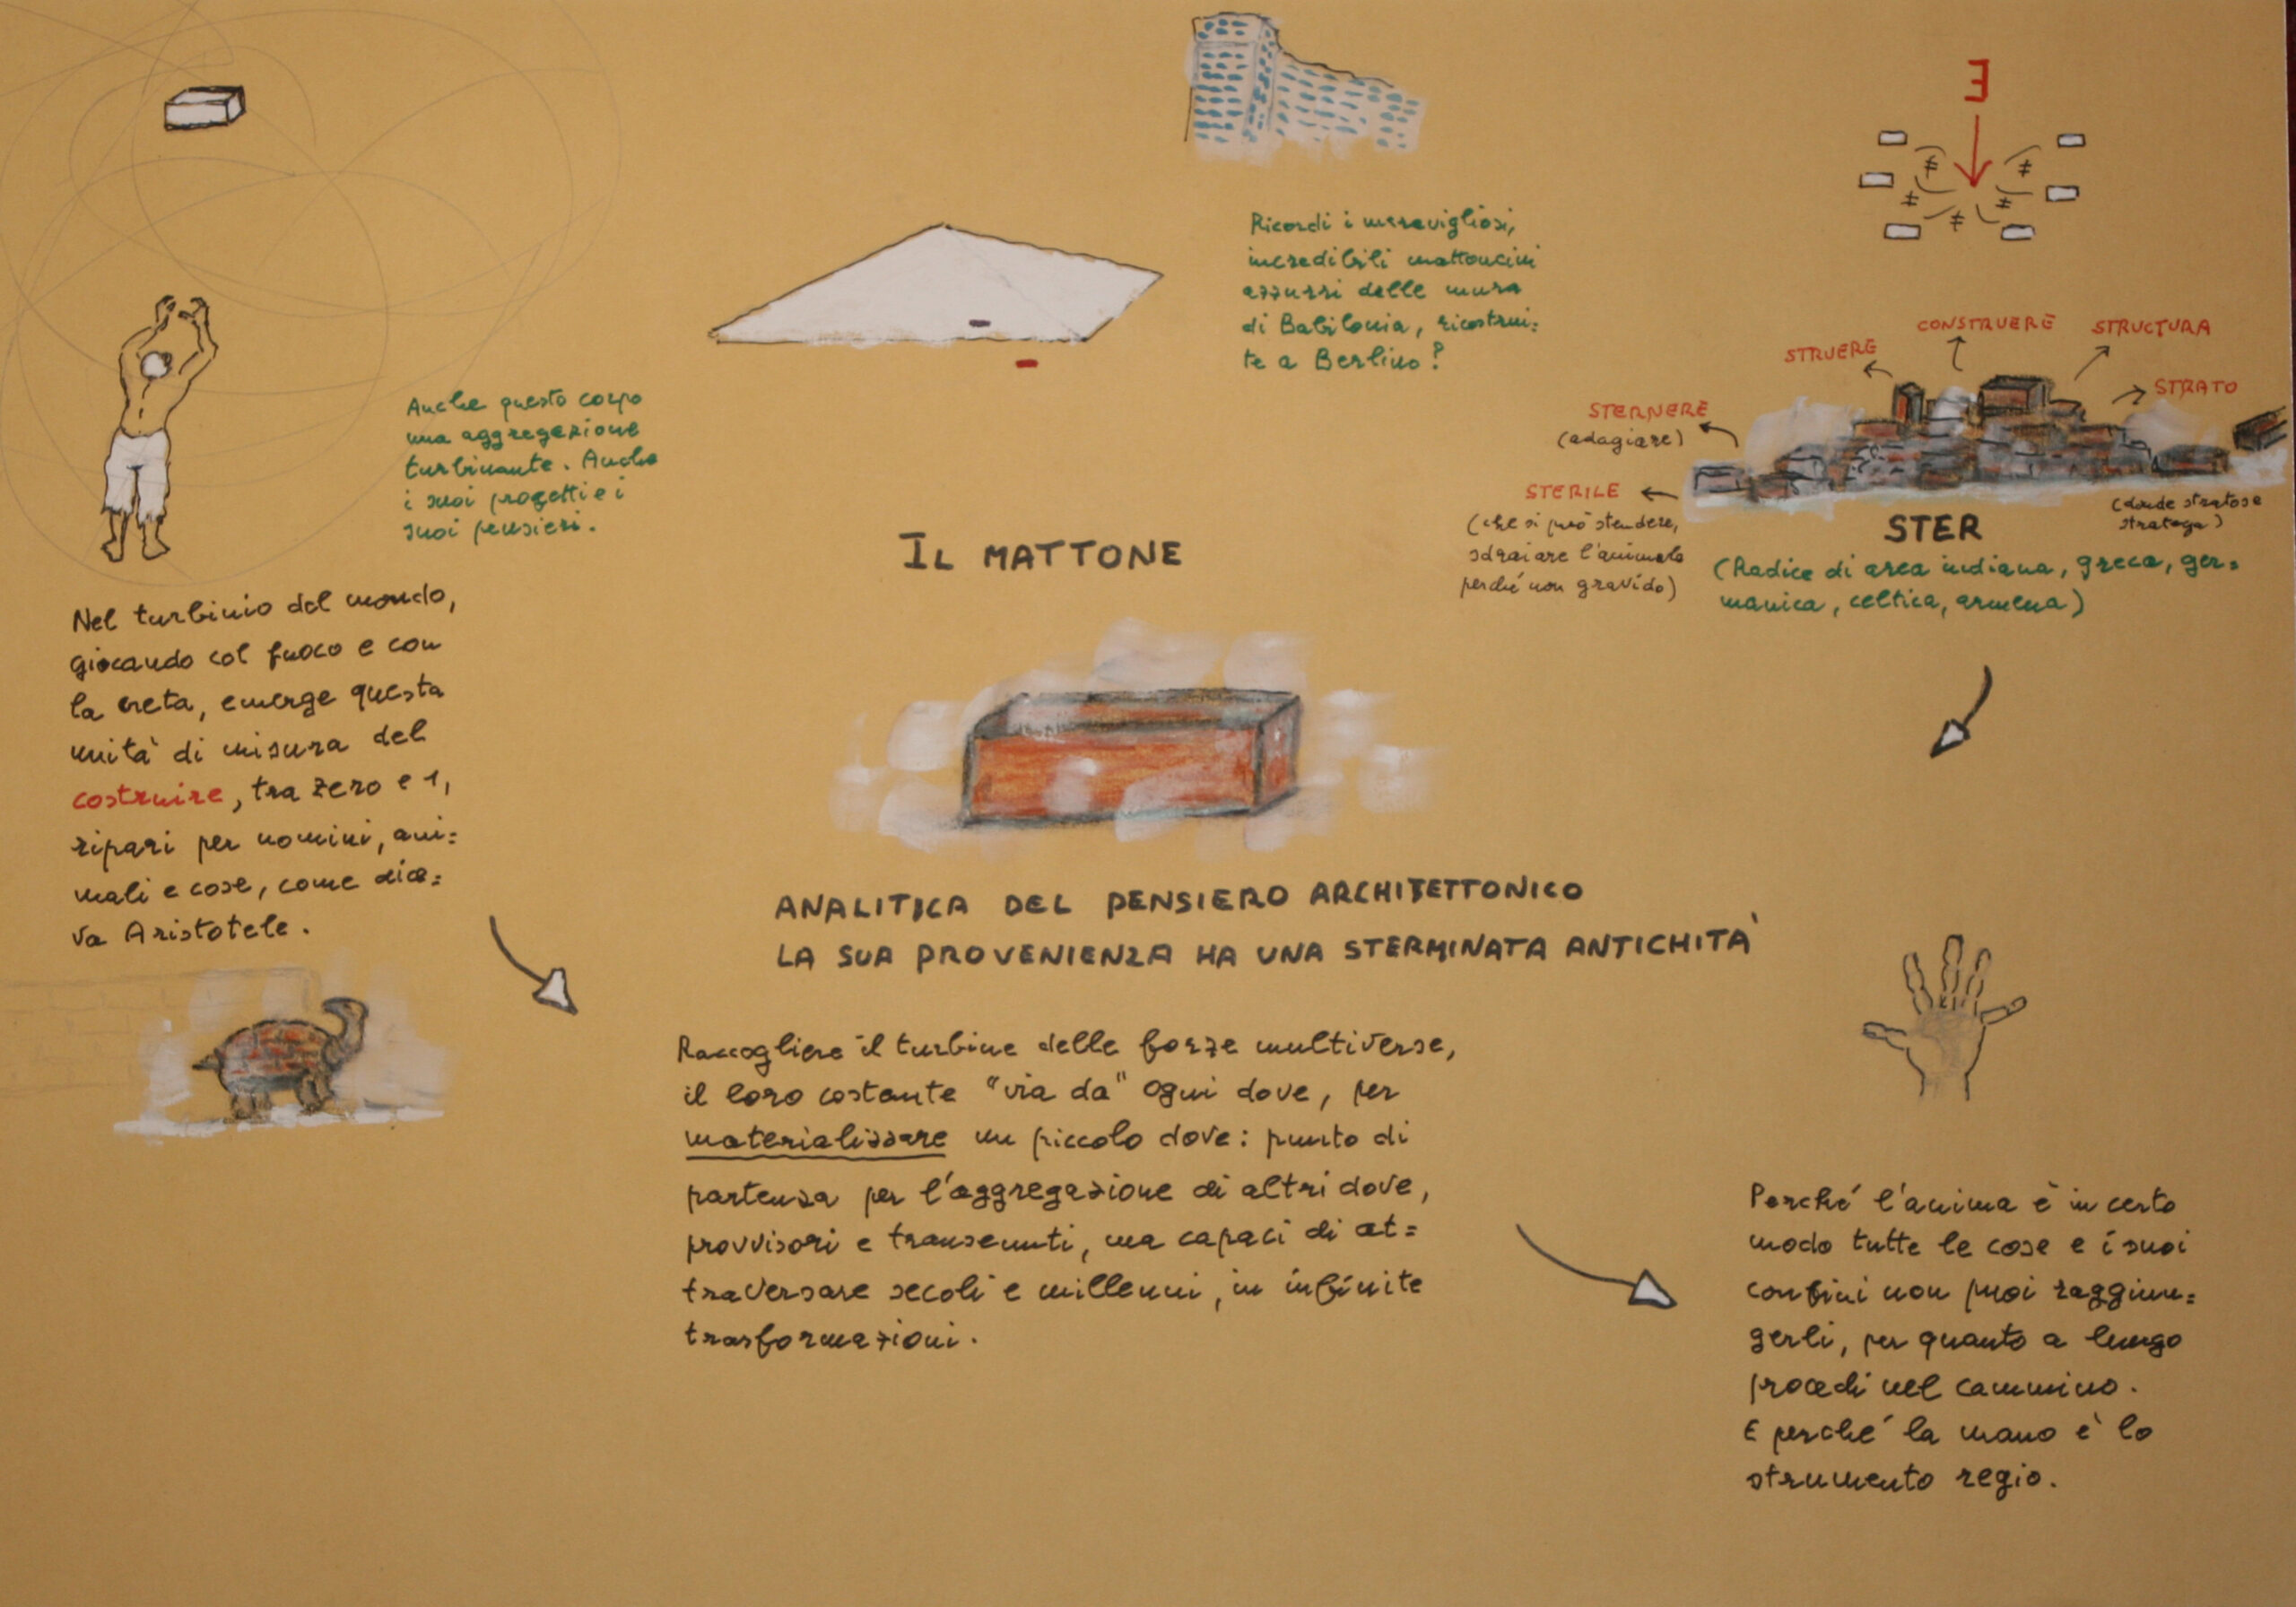 Anche questo corpo
una aggregazione
turbinante. Anche
i suoi progetti e i
suoi pensieri.
Nel turbinio del mondo,
giocando col fuoco e con
la creta, emerge questa
unità di misura del
costruire, tra zero e 1,
ripari per uomini, ani=
mali e cose, come dice=
va Aristotele.
Ricordi i meravigliosi,
incredibili mattoncini
azzurri delle mura
di Babilonia, ricostrui=
te a Berlino?
IL MATTONE
ANALITICA DEL PENSIERO ARCHITETTONICO
LA SUA PROVENIENZA HA UNA STERMINATA ANTICHITÀ
Raccogliere il turbine delle forze multiverse,
il loro costante "via da" ogni dove, per
materializzare un piccolo dove: punto di
partenza per l'aggregazione di altri dove,
provvisori e transeunti, ma capaci di at=
traversare secoli e millenni, in infinite
trasformazioni.
E
≠ ≠
≠ ≠
≠
STRUERE
CONSTRUERE
STRUCTURA
STRATO
STERNERE
(adagiare)
STERILE
(che si può stendere,
sdraiare l'animale
perché non gravido)
(donde stratose
stratega)
STER
(Radice di area indiana, greca, ger=
manica, celtica, armena)
Perché l'anima è in certo
modo tutte le cose e i suoi
confini non puoi raggiun=
gerli, per quanto a lungo
procedi nel cammino.
E perché la mano è lo
strumento regio.